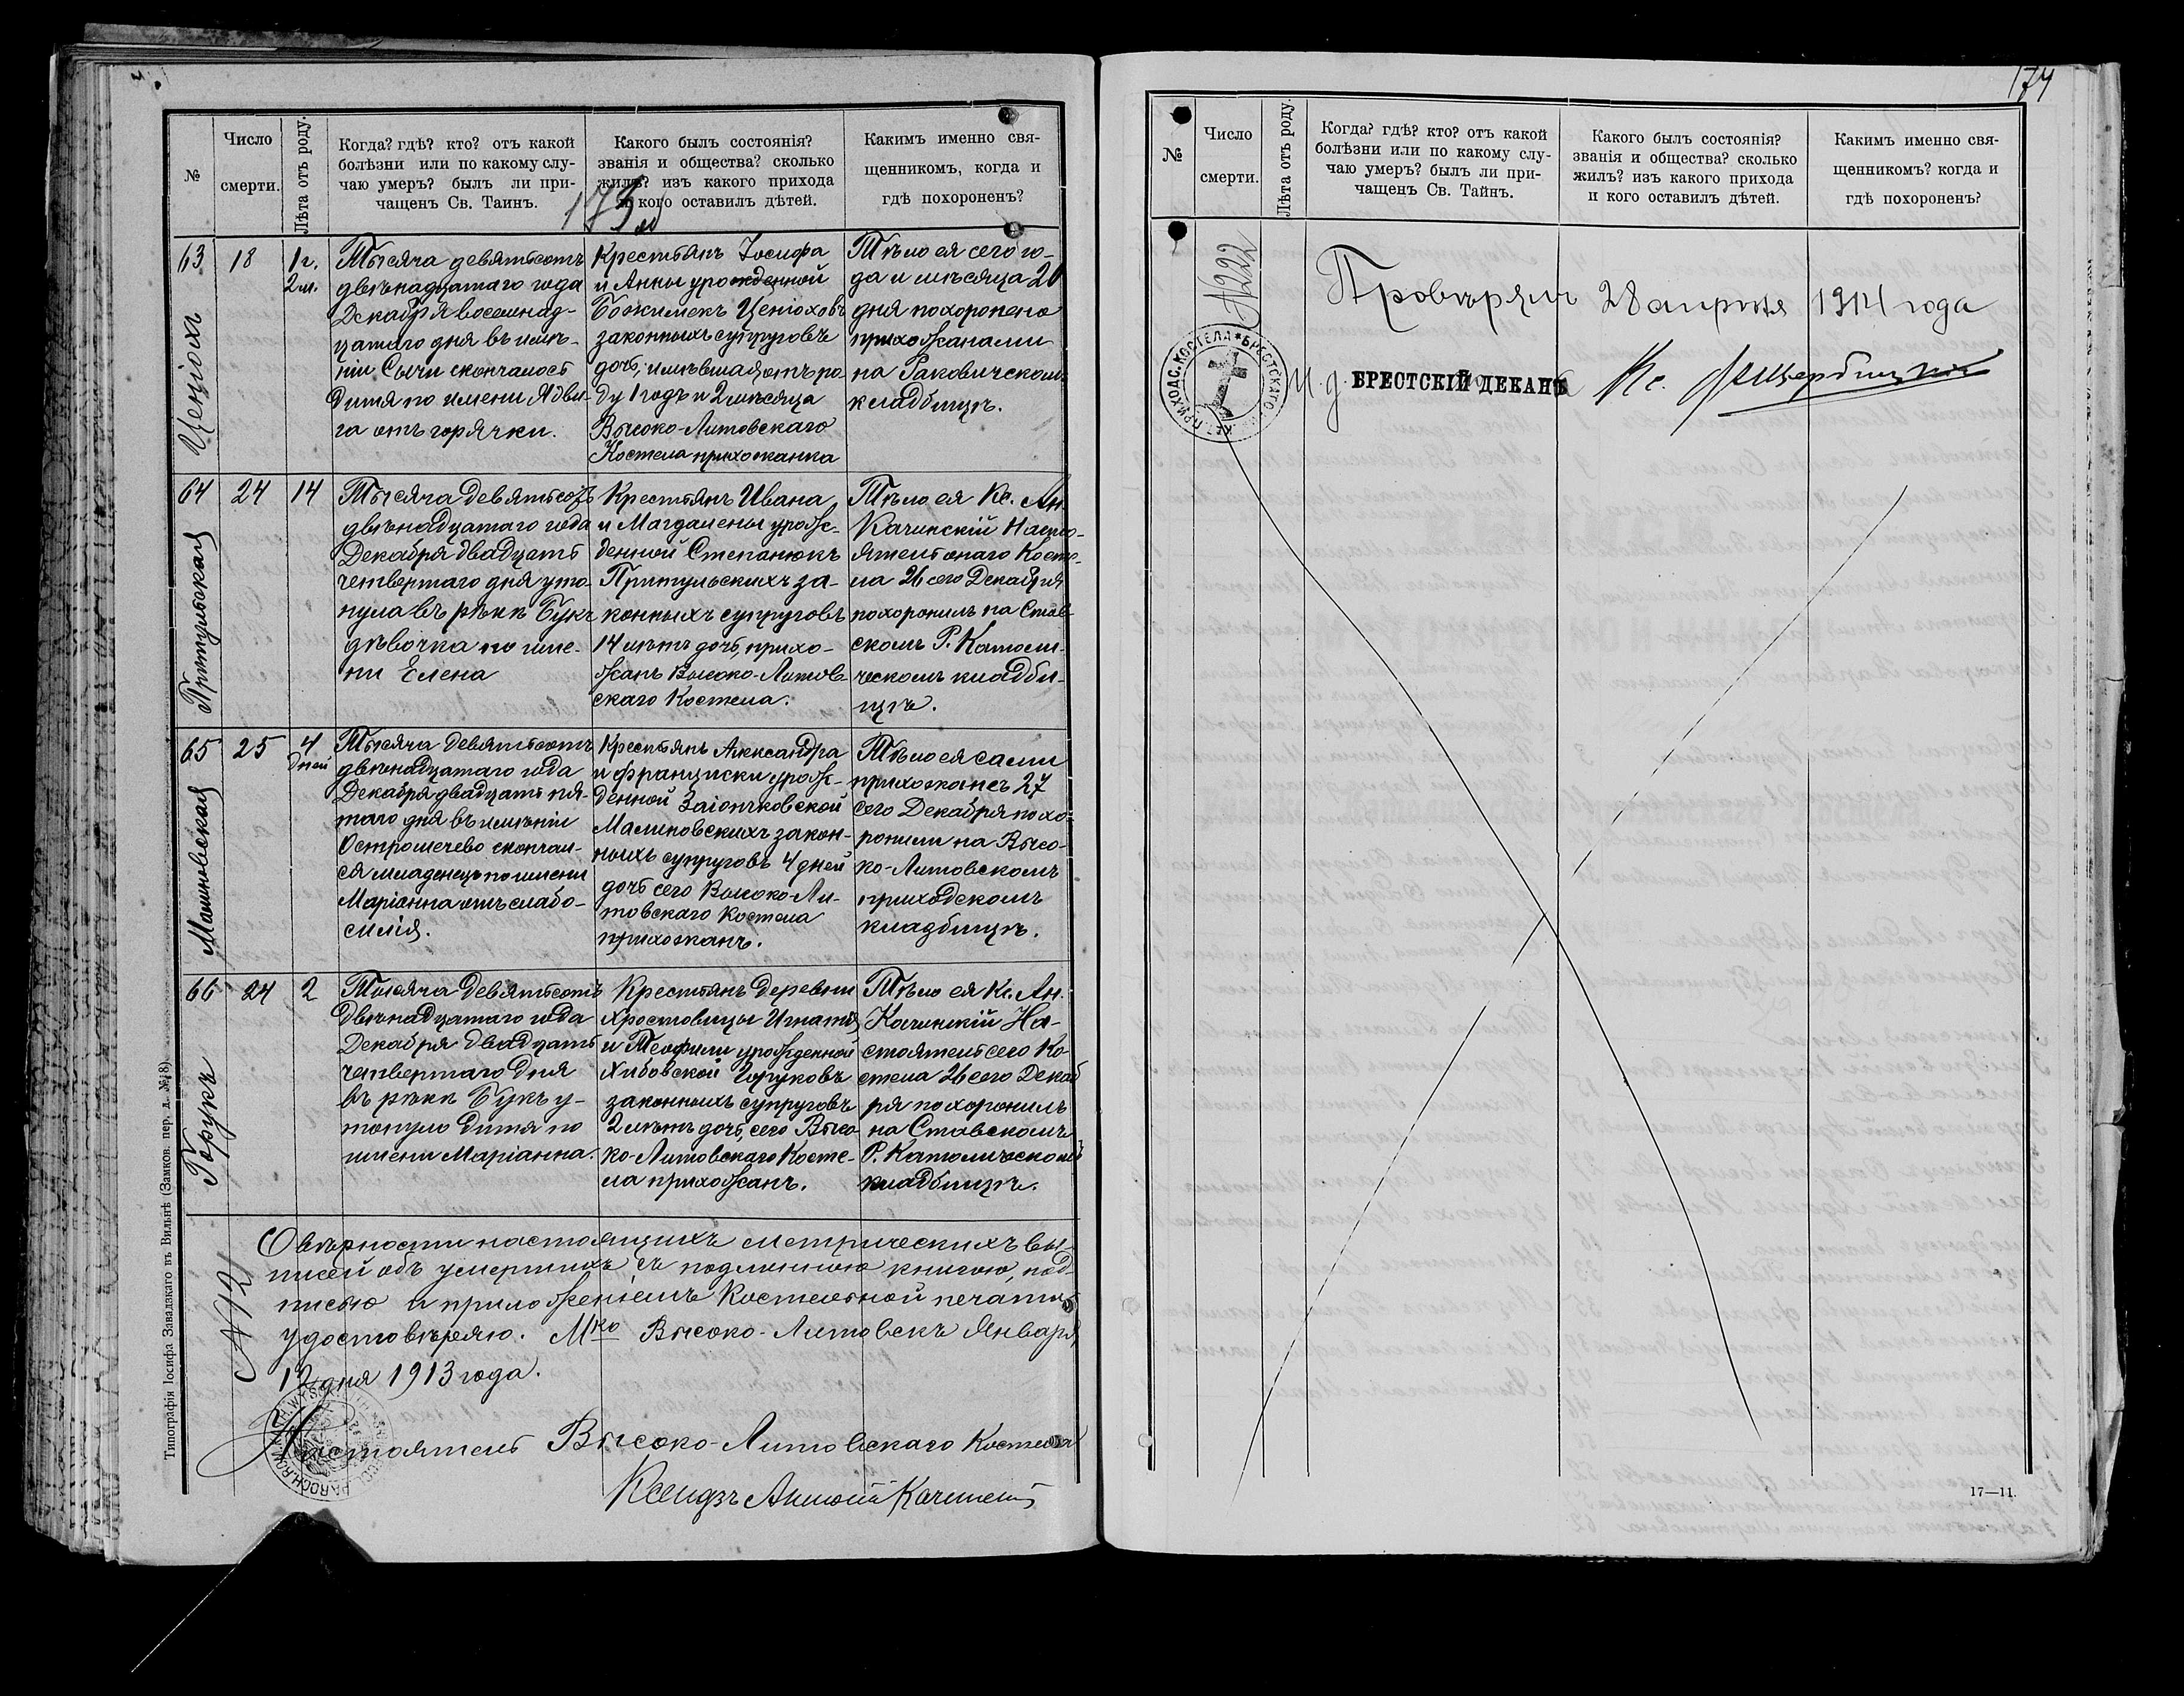 174
№
Число
смерти.
Лѣта отъ роду.
Когда? гдѣ? кто? отъ какой
болѣзни или по какому слу-
чаю умеръ? былъ ли при-
чащенъ Св. Таинъ.
Какого былъ состоянія?
званія и общества? сколько
жилъ? изъ какого прихода
и кого оставилъ дѣтей.
Какимъ именно свя-
щенникомъ, когда и
гдѣ похороненъ?
63
Ценіохъ
18
1 г.
2 м.
Тысяча девятьсотъ
двѣнадцатаго года
Декабря восемнад-
цатаго дня въ имѣ-
ніи Сычи скончалось
дитя по имени Ядви-
га отъ горячки.
Крестьянъ Іосифа
и Анны урожденной
Божимекъ Ценіоховъ
законныхъ супруговъ
дочь, имѣвшая отъ ро-
ду 1 годъ и 2 мѣсяца
Высоко-Литовскаго
Костела прихожанка
Тѣло ея сего го-
да и мѣсяца 20
дня похоронено
прихожанами
на Раковичскомъ
кладбищѣ.
64
Притульская
24
14
Тысяча девятьсотъ
двѣнадцатаго года
Декабря двадцать
четвертаго дня уто-
нула въ рѣкѣ Букъ
дѣвочка по име-
ни Елена
Крестьянъ Ивана
и Магдалены урож-
денной Степанюкъ
Притульскихъ за-
конныхъ супруговъ
14 лѣтъ дочь, прихо-
жанъ Высоко-Литов-
скаго Костела.
Тѣло ея Кс. Ан.
Качинскій Насто-
ятель онаго Косте-
ла 26 сего Декабря
похоронилъ на Став-
скомъ Р. Католи-
ческомъ кладби-
щѣ.
65
Малиновская
25
4
дней
Тысяча девятьсотъ
двѣнадцатаго года
Декабря двадцать пя-
таго дня въ имѣніи
Остромечево скончал-
ся младенецъ по имени
Маріанна отъ слабо-
силія.
Крестьянъ Александра
и Франциски урож-
денной Заіончковской
Малиновскихъ закон-
ныхъ супруговъ 4 дней
дочь сего Высоко-Ли-
товскаго Костела
прихожанъ.
Тѣло ея сами
прихожане 27
сего Декабря похо-
ронили на Высо-
ко-Литовскомъ
приходскомъ
кладбищѣ.
66
Горукъ
24
2
Тысяча девятьсотъ
двѣнадцатаго года
Декабря двадцать
четвертаго дня
въ рѣкѣ Букъ у-
тонуло дитя по
имени Маріанна.
Крестьянъ деревни
Хростовицы Игнатія
и Теофили урожденной
Хибовской Горуковъ
законныхъ супруговъ
2 лѣтъ дочь, сего Высо-
ко-Литовскаго Косте-
ла прихожанъ.
Тѣло ея Кс. Ан.
Качинскій На-
стоятель сего Ко-
стела 26 сего Декаб-
ря похоронилъ
на Ставскомъ
Р. Католическомъ
кладбищѣ.
№ 12
О вѣрности настоящихъ метрическихъ вы-
писей объ умершихъ съ подлинною книгою, под-
писью и приложеніемъ Костельной печати
удостовѣряю. Мко Высоко-Литовскъ Января
12 дня 1913 года.
Настоятель Высоко-Литовскаго Костела
Ксендзъ Антоній Качинскій
Типографія Іосифа Завадзкаго въ Вильнѣ (Замков. пер. д. № 8)
№
Число
смерти.
Лѣта отъ роду.
Когда? гдѣ? кто? отъ какой
болѣзни или по какому слу-
чаю умеръ? былъ ли при-
чащенъ Св. Тайнъ.
Какого былъ состоянія?
званія и общества? сколько
жилъ? изъ какого прихода
и кого оставилъ дѣтей.
Какимъ именно свя-
щенникомъ? когда и
гдѣ похороненъ?
№ 222
Провѣрялъ 28 апрѣля 1914 года
И. д. БРЕСТСКІЙ ДЕКАНЪ Кс.
17—11.